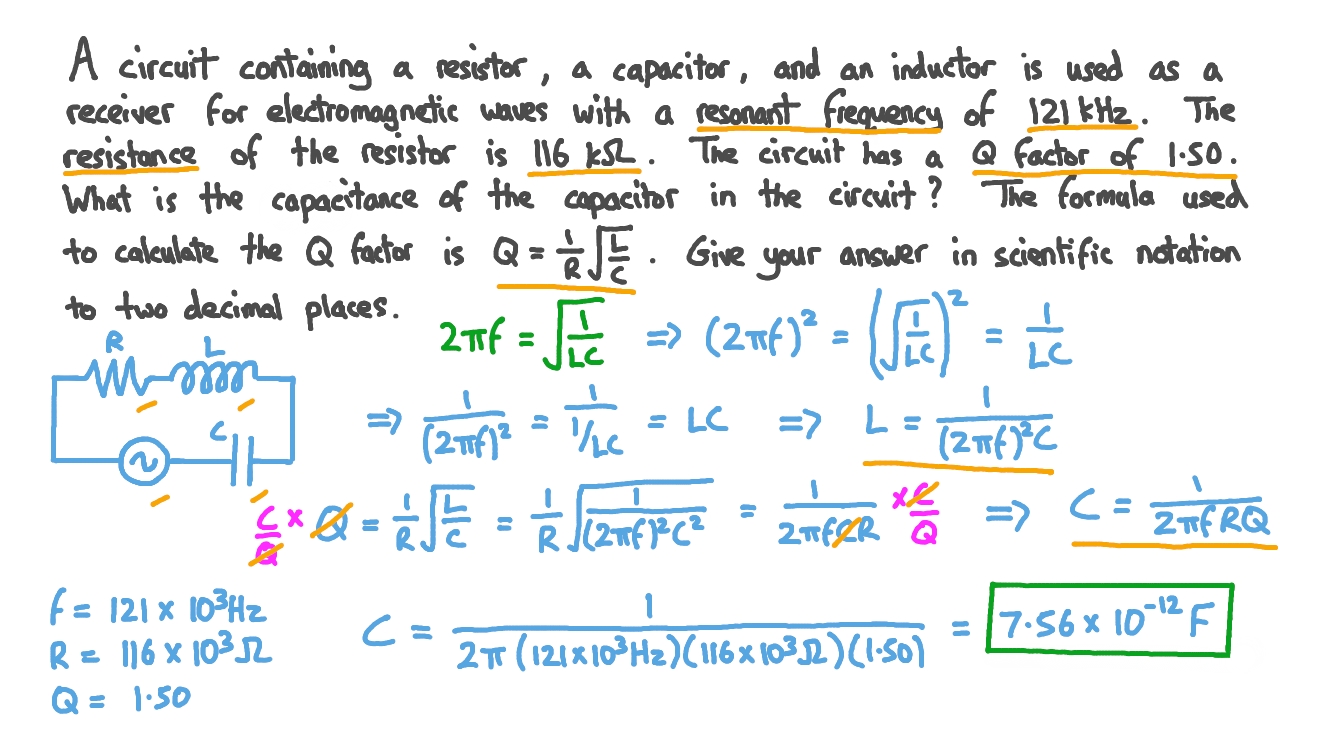 A circuit containing a resistor, a capacitor, and an inductor is used as a
receiver for electromagnetic waves with a resonant frequency of 121 kHz. The
resistance of the resistor is 116 kΩ. The circuit has a Q factor of 1.50.
What is the capacitance of the capacitor in the circuit? The formula used
to calculate the Q factor is Q = 1/R √(L/C). Give your answer in scientific notation
to two decimal places.
2πf = √(1/LC) ⇒ (2πf)² = (√(1/LC))² = 1/LC
R L
C
⇒ 1/(2πf)² = 1/(1/LC) = LC ⇒ L = 1/((2πf)²C)
C/Q × Q = 1/R √(L/C) = 1/R √(1/((2πf)²C²)) = 1/(2πfCR) × C/Q ⇒ C = 1/(2πfRQ)
f = 121 × 10³Hz
R = 116 × 10³Ω
Q = 1.50
C = 1/(2π(121×10³Hz)(116×10³Ω)(1.50)) = 7.56 × 10⁻¹² F